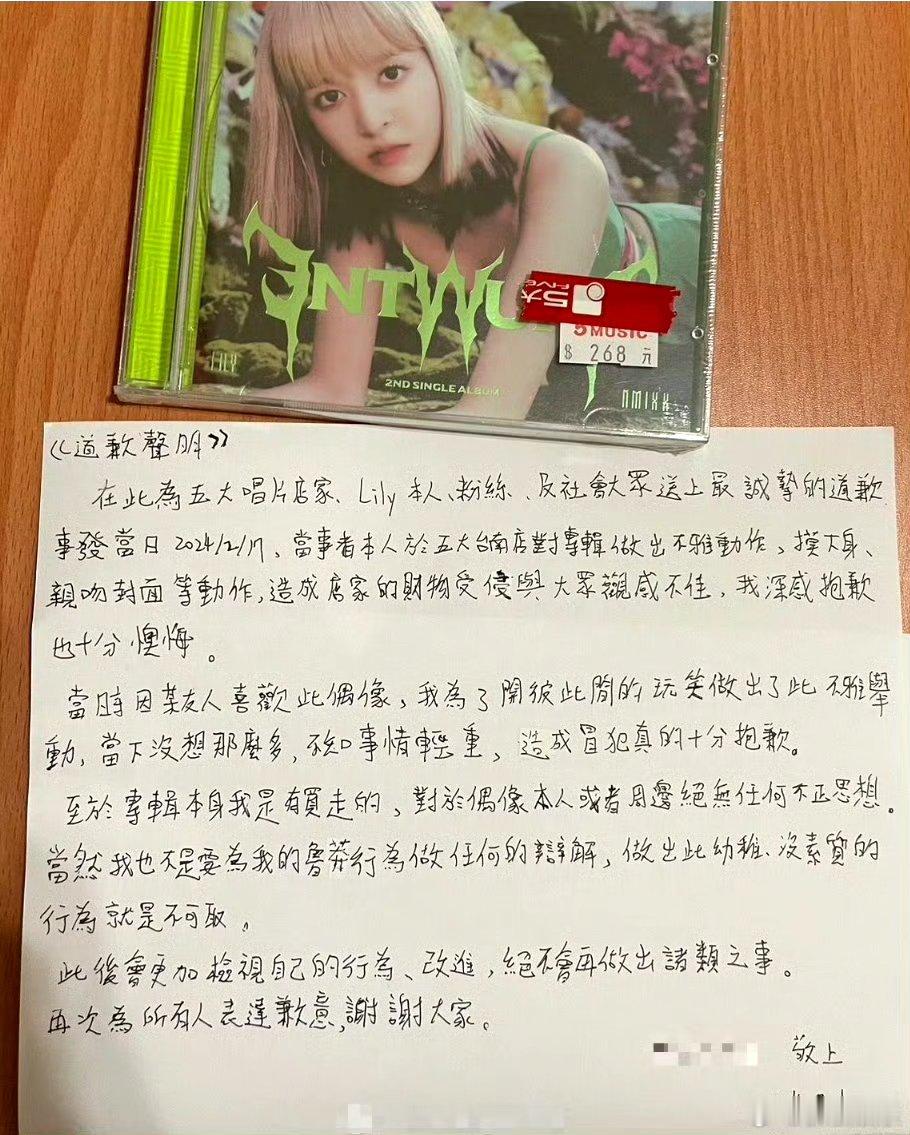 ENTWU
LILY
2ND SINGLE ALBUM
NMIXX
五大
FIVE
5 MUSIC
$ 268 元
《道歉聲明》
在此為五大唱片店家、Lily本人、粉絲、及社會大眾送上最誠摯的道歉
事發當日 2024/2/17、當事者本人於五大台南店對專輯做出不雅動作，摸下身、
親吻封面等動作，造成店家的財物受侵與大眾觀感不佳，我深感抱歉
也十分懊悔。
當時因某友人喜歡此偶像，我為了開彼此間的玩笑做出了此不雅舉
動，當下沒想那麼多，不知事情輕重，造成冒犯真的十分抱歉。
至於專輯本身我是有買走的，對於偶像本人或者周邊絕無任何不正思想。
當然我也不是要為我的魯莽行為做任何的辯解，做出此幼稚、沒素質的
行為就是不可取。
此後會更加檢視自己的行為、改進，絕不會再做出諸類之事。
再次為所有人表達歉意，謝謝大家。
敬上